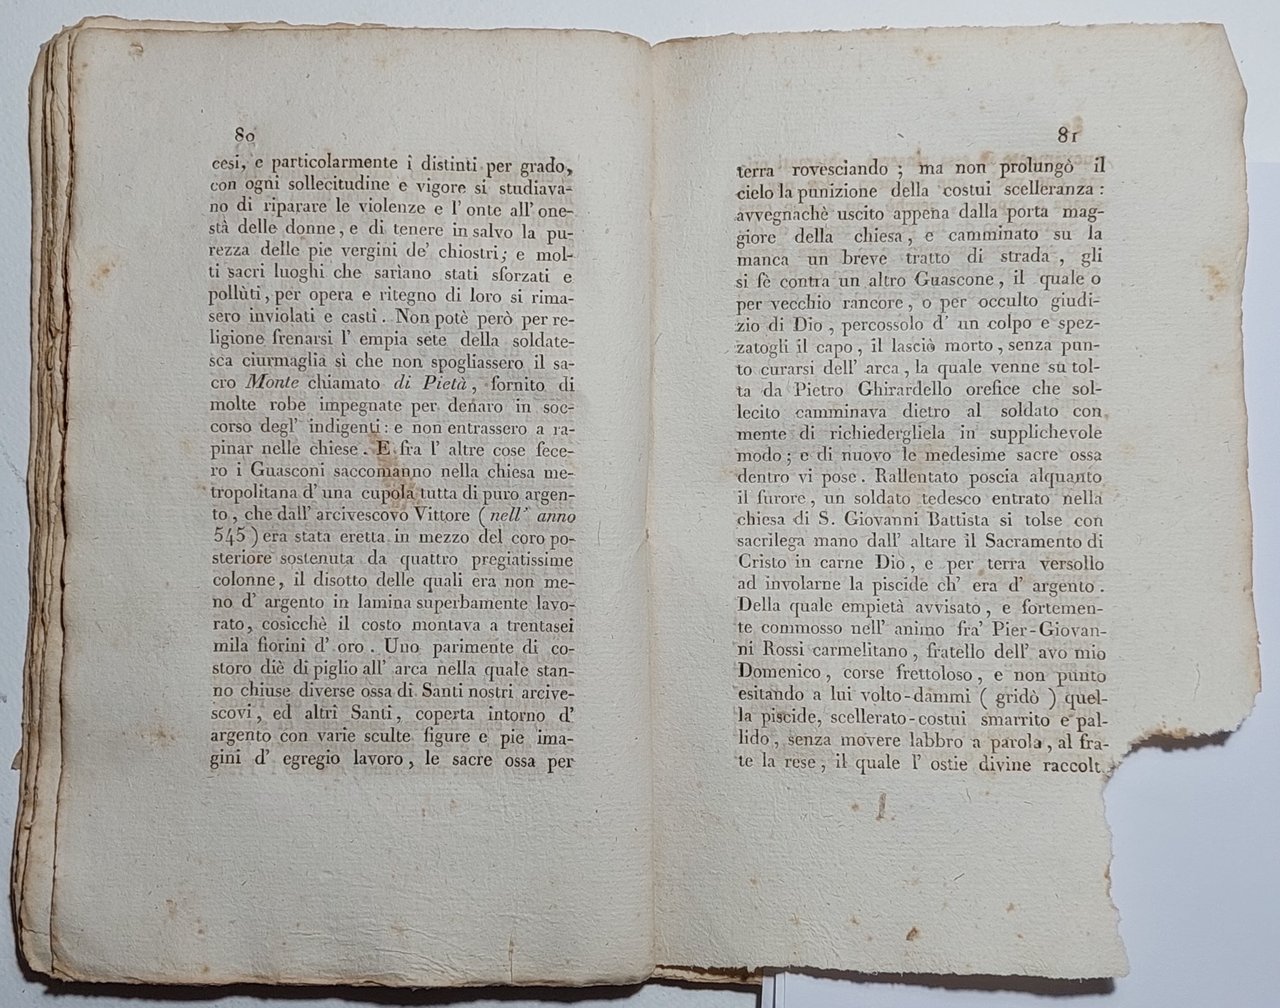 80
cesi, e particolarmente i distinti per grado,
con ogni sollecitudine e vigore si studiava-
no di riparare le violenze e l' onte all' one-
stà delle donne, e di tenere in salvo la pu-
rezza delle pie vergini de' chiostri; e mol-
ti sacri luoghi che sariano stati sforzati e
pollùti, per opera e ritegno di loro si rima-
sero inviolati e casti. Non potè però per re-
ligione frenarsi l' empia sete della soldate-
sca ciurmaglia sì che non spogliassero il sa-
cro Monte chiamato di Pietà, fornito di
molte robe impegnate per denaro in soc-
corso degl' indigenti: e non entrassero a ra-
pinar nelle chiese. E fra l' altre cose fece-
ro i Guasconi saccomanno nella chiesa me-
tropolitana d' una cupola tutta di puro argen-
to, che dall' arcivescovo Vittore (nell' anno
545) era stata eretta in mezzo del coro po-
steriore sostenuta da quattro pregiatissime
colonne, il disotto delle quali era non me-
no d' argento in lamina superbamente lavo-
rato, cosicchè il costo montava a trentasei
mila fiorini d' oro. Uno parimente di co-
storo diè di piglio all' arca nella quale stan-
no chiuse diverse ossa di Santi nostri arcive-
scovi, ed altri Santi, coperta intorno d'
argento con varie sculte figure e pie ima-
gini d' egregio lavoro, le sacre ossa per
81
terra rovesciando; ma non prolungò il
cielo la punizione della costui scelleranza:
avvegnachè uscito appena dalla porta mag-
giore della chiesa, e camminato su la
manca un breve tratto di strada, gli
si fè contra un altro Guascone, il quale o
per vecchio rancore, o per occulto giudi-
zio di Dio, percossolo d' un colpo e spez-
zatogli il capo, il lasciò morto, senza pun-
to curarsi dell' arca, la quale venne su tol-
ta da Pietro Ghirardello orefice che sol-
lecito camminava dietro al soldato con
mente di richiedergliela in supplichevole
modo; e di nuovo le medesime sacre ossa
dentro vi pose. Rallentato poscia alquanto
il furore, un soldato tedesco entrato nella
chiesa di S. Giovanni Battista si tolse con
sacrilega mano dall' altare il Sacramento di
Cristo in carne Dio, e per terra versollo
ad involarne la piscide ch' era d' argento.
Della quale empietà avvisato, e fortemen-
te commosso nell' animo fra' Pier-Giovan-
ni Rossi carmelitano, fratello dell' avo mio
Domenico, corse frettoloso, e non punto
esitando a lui volto-dammi (gridò) quel-
la piscide, scellerato-costui smarrito e pal-
lido, senza movere labbro a parola, al fra-
te la rese, il quale l' ostie divine raccolt